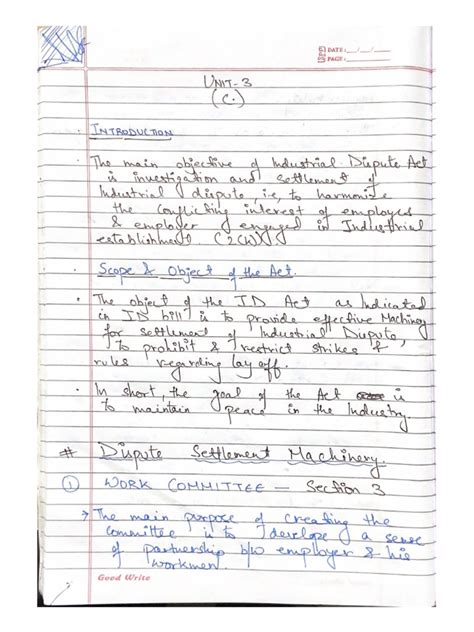 DATE: __/__/__
PAGE:
UNIT-3
(C.)
INTRODUCTION
The main objective of Industrial Dispute Act
is investigation and settlement of
Industrial dispute, i.e, to harmonize
the conflicting interest of employees
& employer engaged in Industrial
establishment.
Scope & Object of the Act.
The object of the ID Act as Indicated
in ID bill is to provide effective Machinery
for settlement of Industrial Dispute,
to prohibit & restrict strikes &
rules regarding lay off.
In short, the goal of the Act is
to maintain peace in the Industry.
# Dispute Settlement Machinery.
① WORK COMMITTEE — Section 3
→ The main purpose of creating the
committee is to develope a sense
of partnership b/w employer & his
workmen.
Good Write